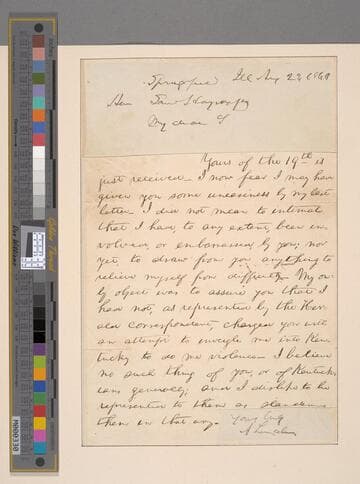 Springfield Ill Aug 23 1860
Hon Saml Haycraft
My dear S
Yours of the 19th is
just received. I now fear I may have
given you some uneasiness by my last
letter. I did not mean to intimate
that I have, to any extent, been in-
volved, or embarrassed by you; nor
yet to draw from you anything to
relieve myself from difficulty. My on-
ly object was to assure you that I
had not, as represented by the Her-
ald correspondent, charged you with
an attempt to inveigle me into Ken-
tucky to do me violence. I believe
no such thing of you or of Kentuck-
ians generally; and I dislike to be
represented to them as slandering
them in that way.
Yours truly
A Lincoln
M000338